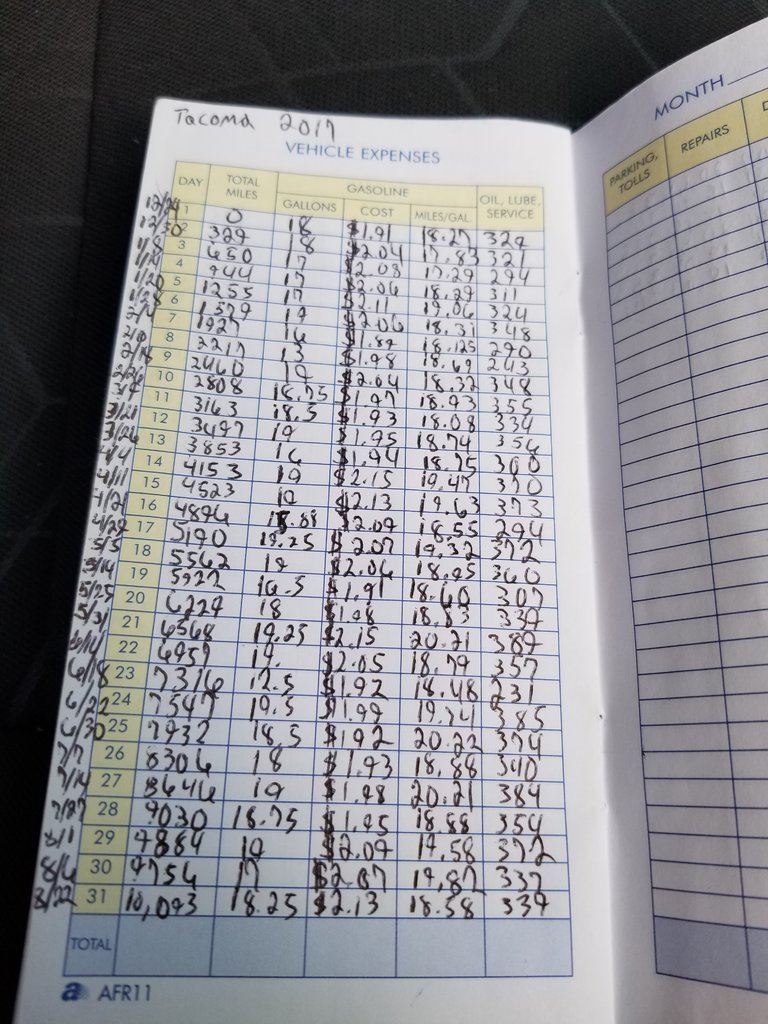 Tacoma 2017
VEHICLE EXPENSES
MONTH
DAY TOTAL MILES GASOLINE OIL, LUBE, SERVICE
GALLONS COST MILES/GAL.
PARKING, TOLLS REPAIRS
12/24 1 0
12/30 2 329 18 $1.91 18.27 329
1/8 3 650 18 $2.04 17.83 321
4 944 17 $2.08 17.29 294
1/20 5 1255 17 $2.06 18.29 311
6 1579 17 $2.11 19.06 324
7 1927 19 $2.06 18.31 348
8 2217 16 18.125 290
2/18 9 2460 13 $1.98 18.69 243
10 2808 19 $2.04 18.32 348
11 3163 18.75 $1.97 18.93 355
3/21 12 3497 18.5 $1.93 18.08 334
3/26 13 3853 19 $1.95 18.74 356
4/4 14 4153 16 $1.94 18.75 300
4/11 15 4523 19 $2.15 19.47 370
4/21 16 4896 19 $2.13 19.63 373
4/29 17 5190 $2.09 18.55 294
5/5 18 5562 19.25 $2.07 19.32 372
5/14 19 5922 19 $2.06 18.95 360
5/25 20 6229 16.5 $1.91 18.60 307
5/31 21 6568 18 $1.98 18.83 339
22 6957 19.25 $2.15 20.21 389
6/18 23 7316 19. $2.05 18.79 357
6/22 24 7547 12.5 $1.92 18.48 231
6/30 25 7932 19.5 $1.99 19.74 385
7/7 26 8306 18.5 $1.92 20.22 374
7/14 27 8646 18 $1.93 18.88 340
7/27 28 9030 19 $1.98 20.21 384
8/1 29 9384 18.75 $1.95 18.88 354
8/6 30 9756 19 $2.09 19.58 372
8/22 31 10,093 17 $2.07 19.82 337
18.25 $2.13 18.58 339
TOTAL
a AFR11